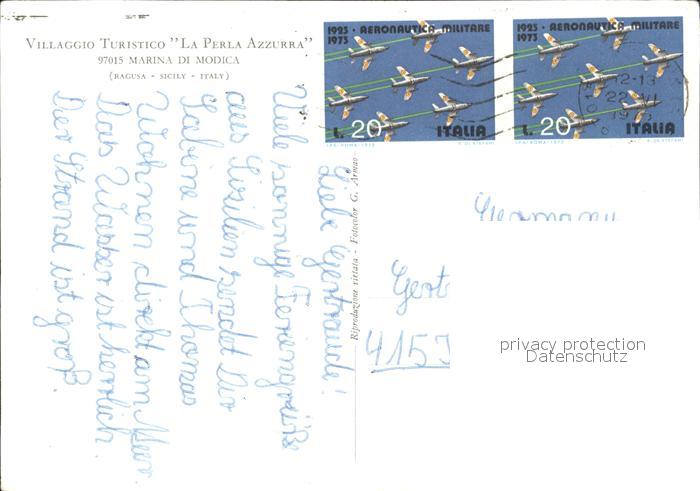 VILLAGGIO TURISTICO "LA PERLA AZZURRA"
97015 MARINA DI MODICA
(RAGUSA - SICILY - ITALY)
1923 · AERONAUTICA MILITARE
1973
L. 20 ITALIA
I.P.S.-ROMA-1973 R. DI STEFANI
1923 · AERONAUTICA MILITARE
1973
L. 20 ITALIA
I.P.S.-ROMA-1973 R. DI STEFANI
12-13
22
Liebe Gertraude!
Viele sonnige Feriengrüße
aus Sizilien sendet Dir
Sabine und Thomas
Wohnen direkt am Meer.
Das Wasser ist herrlich.
Der Strand ist groß.
Riproduzione vietata - Fotocolor G. Armao
Germany
Gert
415
privacy protection
Datenschutz